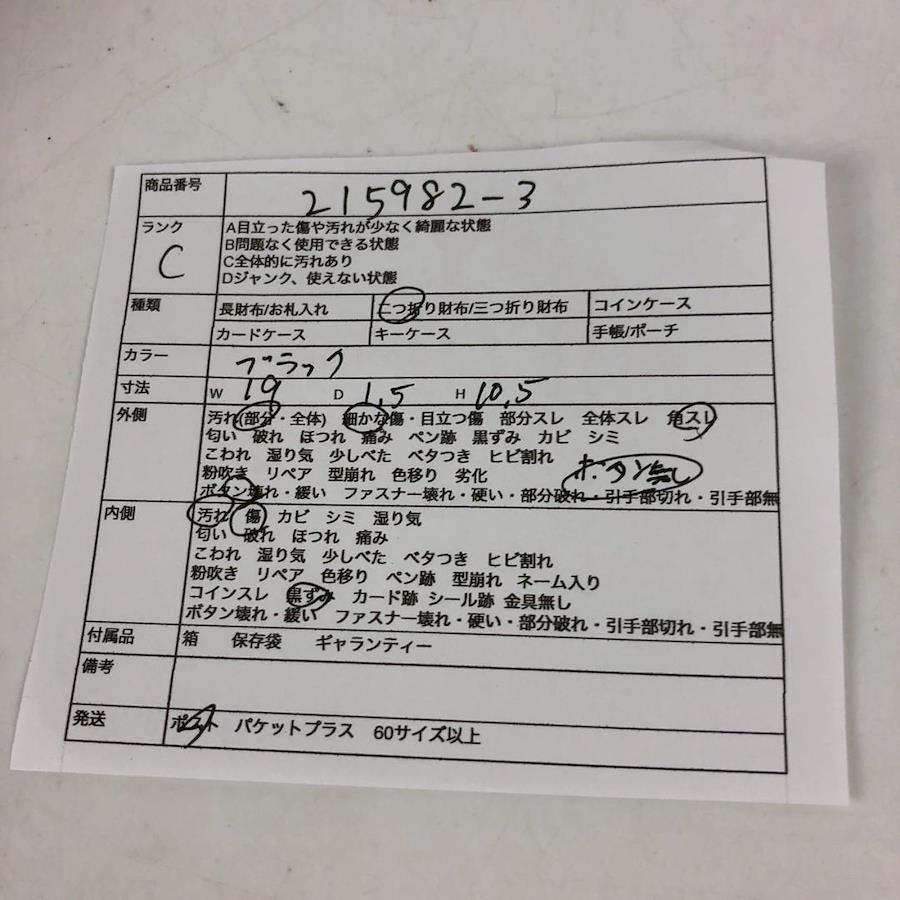 商品番号 215982-3
ランク C
A目立った傷や汚れが少なく綺麗な状態
B問題なく使用できる状態
C全体的に汚れあり
Dジャンク、使えない状態
種類 長財布/お札入れ 二つ折り財布/三つ折り財布 コインケース
カードケース キーケース 手帳/ポーチ
カラー ブラック
寸法 W 19 D 1.5 H 10.5
外側 汚れ(部分・全体) 細かな傷・目立つ傷 部分スレ 全体スレ 角スレ
匂い 破れ ほつれ 痛み ペン跡 黒ずみ カビ シミ
こわれ 湿り気 少しべた ベタつき ヒビ割れ
粉吹き リペア 型崩れ 色移り 劣化 ボタン無し
ボタン壊れ・緩い ファスナー壊れ・硬い・部分破れ・引手部切れ・引手部無
内側 汚れ 傷 カビ シミ 湿り気
匂い 破れ ほつれ 痛み
こわれ 湿り気 少しべた ベタつき ヒビ割れ
粉吹き リペア 色移り ペン跡 型崩れ ネーム入り
コインスレ 黒ずみ カード跡 シール跡 金具無し
ボタン壊れ・緩い ファスナー壊れ・硬い・部分破れ・引手部切れ・引手部無
付属品 箱 保存袋 ギャランティー
備考
発送 ポスト パケットプラス 60サイズ以上